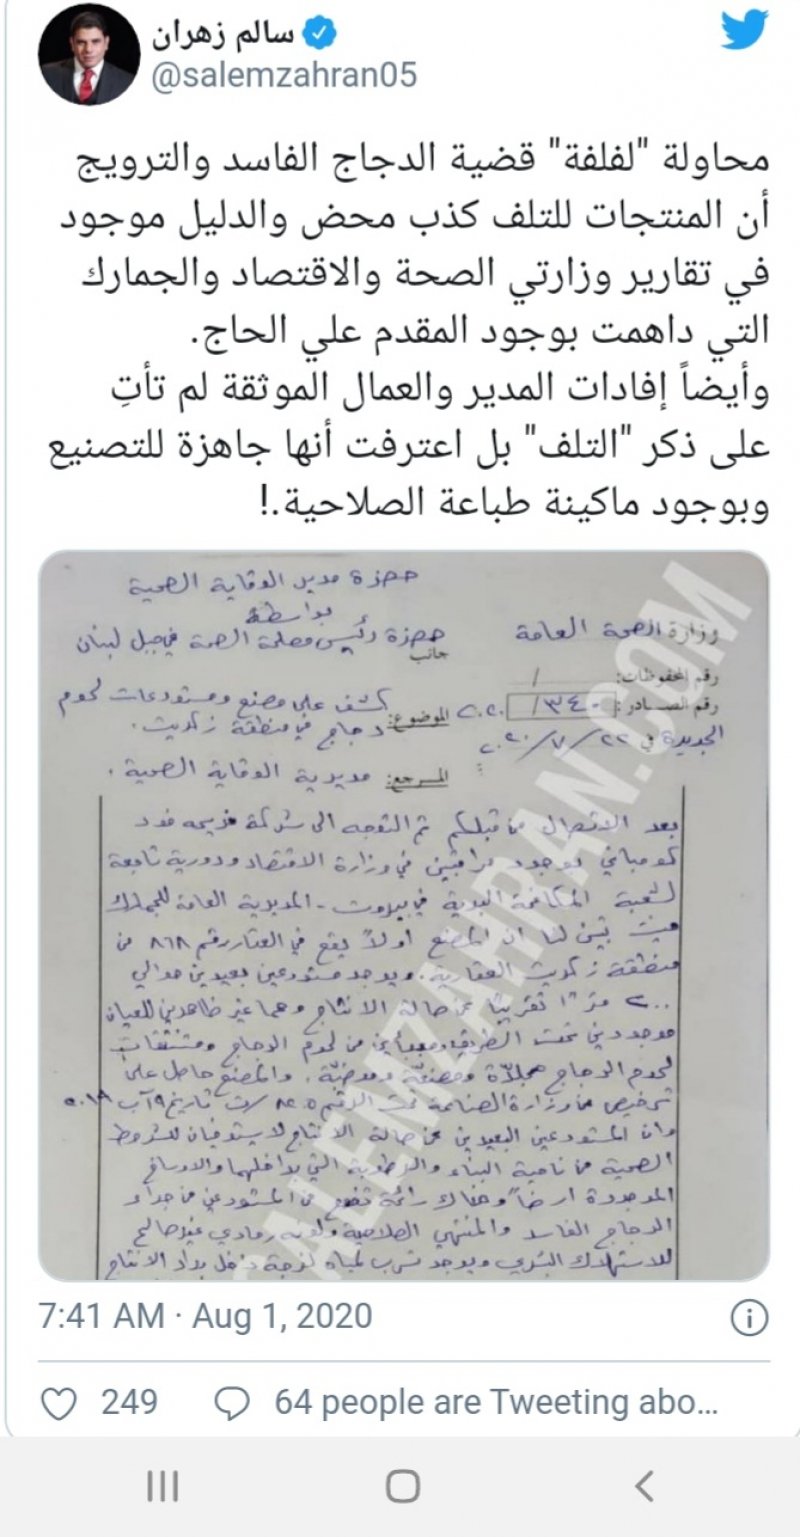 سالم زهران
@salemzahran05
محاولة "لفلفة" قضية الدجاج الفاسد والترويج
أن المنتجات للتلف كذب محض والدليل موجود
في تقارير وزارتي الصحة والاقتصاد والجمارك
التي داهمت بوجود المقدم علي الحاج.
وأيضاً إفادات المدير والعمال الموثقة لم تأتِ
على ذكر "التلف" بل اعترفت أنها جاهزة للتصنيع
وبوجود ماكينة طباعة الصلاحية.!
حضرة مدير الوقاية الصحية
بواسطة
حضرة رئيس مصلحة الصحة في جبل لبنان
جانب
وزارة الصحة العامة
رقم المحفوظات: /
رقم الصـــادر: ١٣٤٠/ ٢٠٢٠
الجديدة في ٢٢/٧/٢٠٢٠
الموضوع: كشف على مصنع ومستودعات لحوم
دجاج في منطقة زكريت.
المـــرجع: مديرية الوقاية الصحية.
بعد الاتصال من قبلكم تم التوجه الى شركة فريحه فود
كومباني بوجود مراقبين في وزارة الاقتصاد ودورية تابعة
لشعبة المكافحة البرية في بيروت - المديرية العامة للجمارك
حيث تبين لنا ان المصنع أولاً يقع في العقار رقم ٨٦٨ من
منطقة زكريت العقارية. ويوجد مستودعين بعيدين حوالي
٢٠٠ مترًا تقريبًا عن صالة الانتاج وهما غير ظاهرين للعيان
موجودين تحت الطريق من لحوم الدجاج ومشتقات
لحوم الدجاج مجلّدة ومصنعة وموضبة. والمصنع حاصل على
ترخيص من وزارة الصناعة تحت الرقم ٨٤٠٥/ت تاريخ ٩ آب ٢٠١٩
وان المستودعين البعيدين عن صالة الانتاج لا يستوفيان للشروط
الصحية من ناحية البناء والرطوبة التي بداخلهما والاوساخ
الموجودة ارضاً وهناك رائحة تفوح من المستودعين من جراء
الدجاج الفاسد والمنتهي الصلاحية ولونه رمادي غير صالح
للاستهلاك البشري ويوجد تسرب لمياه لزجة داخل براد الانتاج
SALEMZAHRAN.COM
7:41 AM · Aug 1, 2020
249
64 people are Tweeting abo...